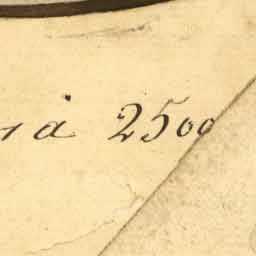 à 2500